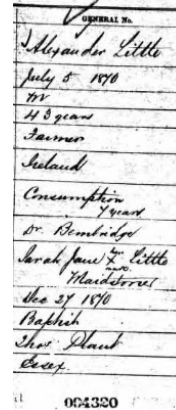 GENERAL No.
Alexander Little
July 5 1870
M
43 years
Farmer
Ireland
Consumption
7 years
Dr. Bembridge
Sarah Jane X Little
her
mark
Maidstone
Dec 27 1870
Baptist
Thos Plant
Essex
004320